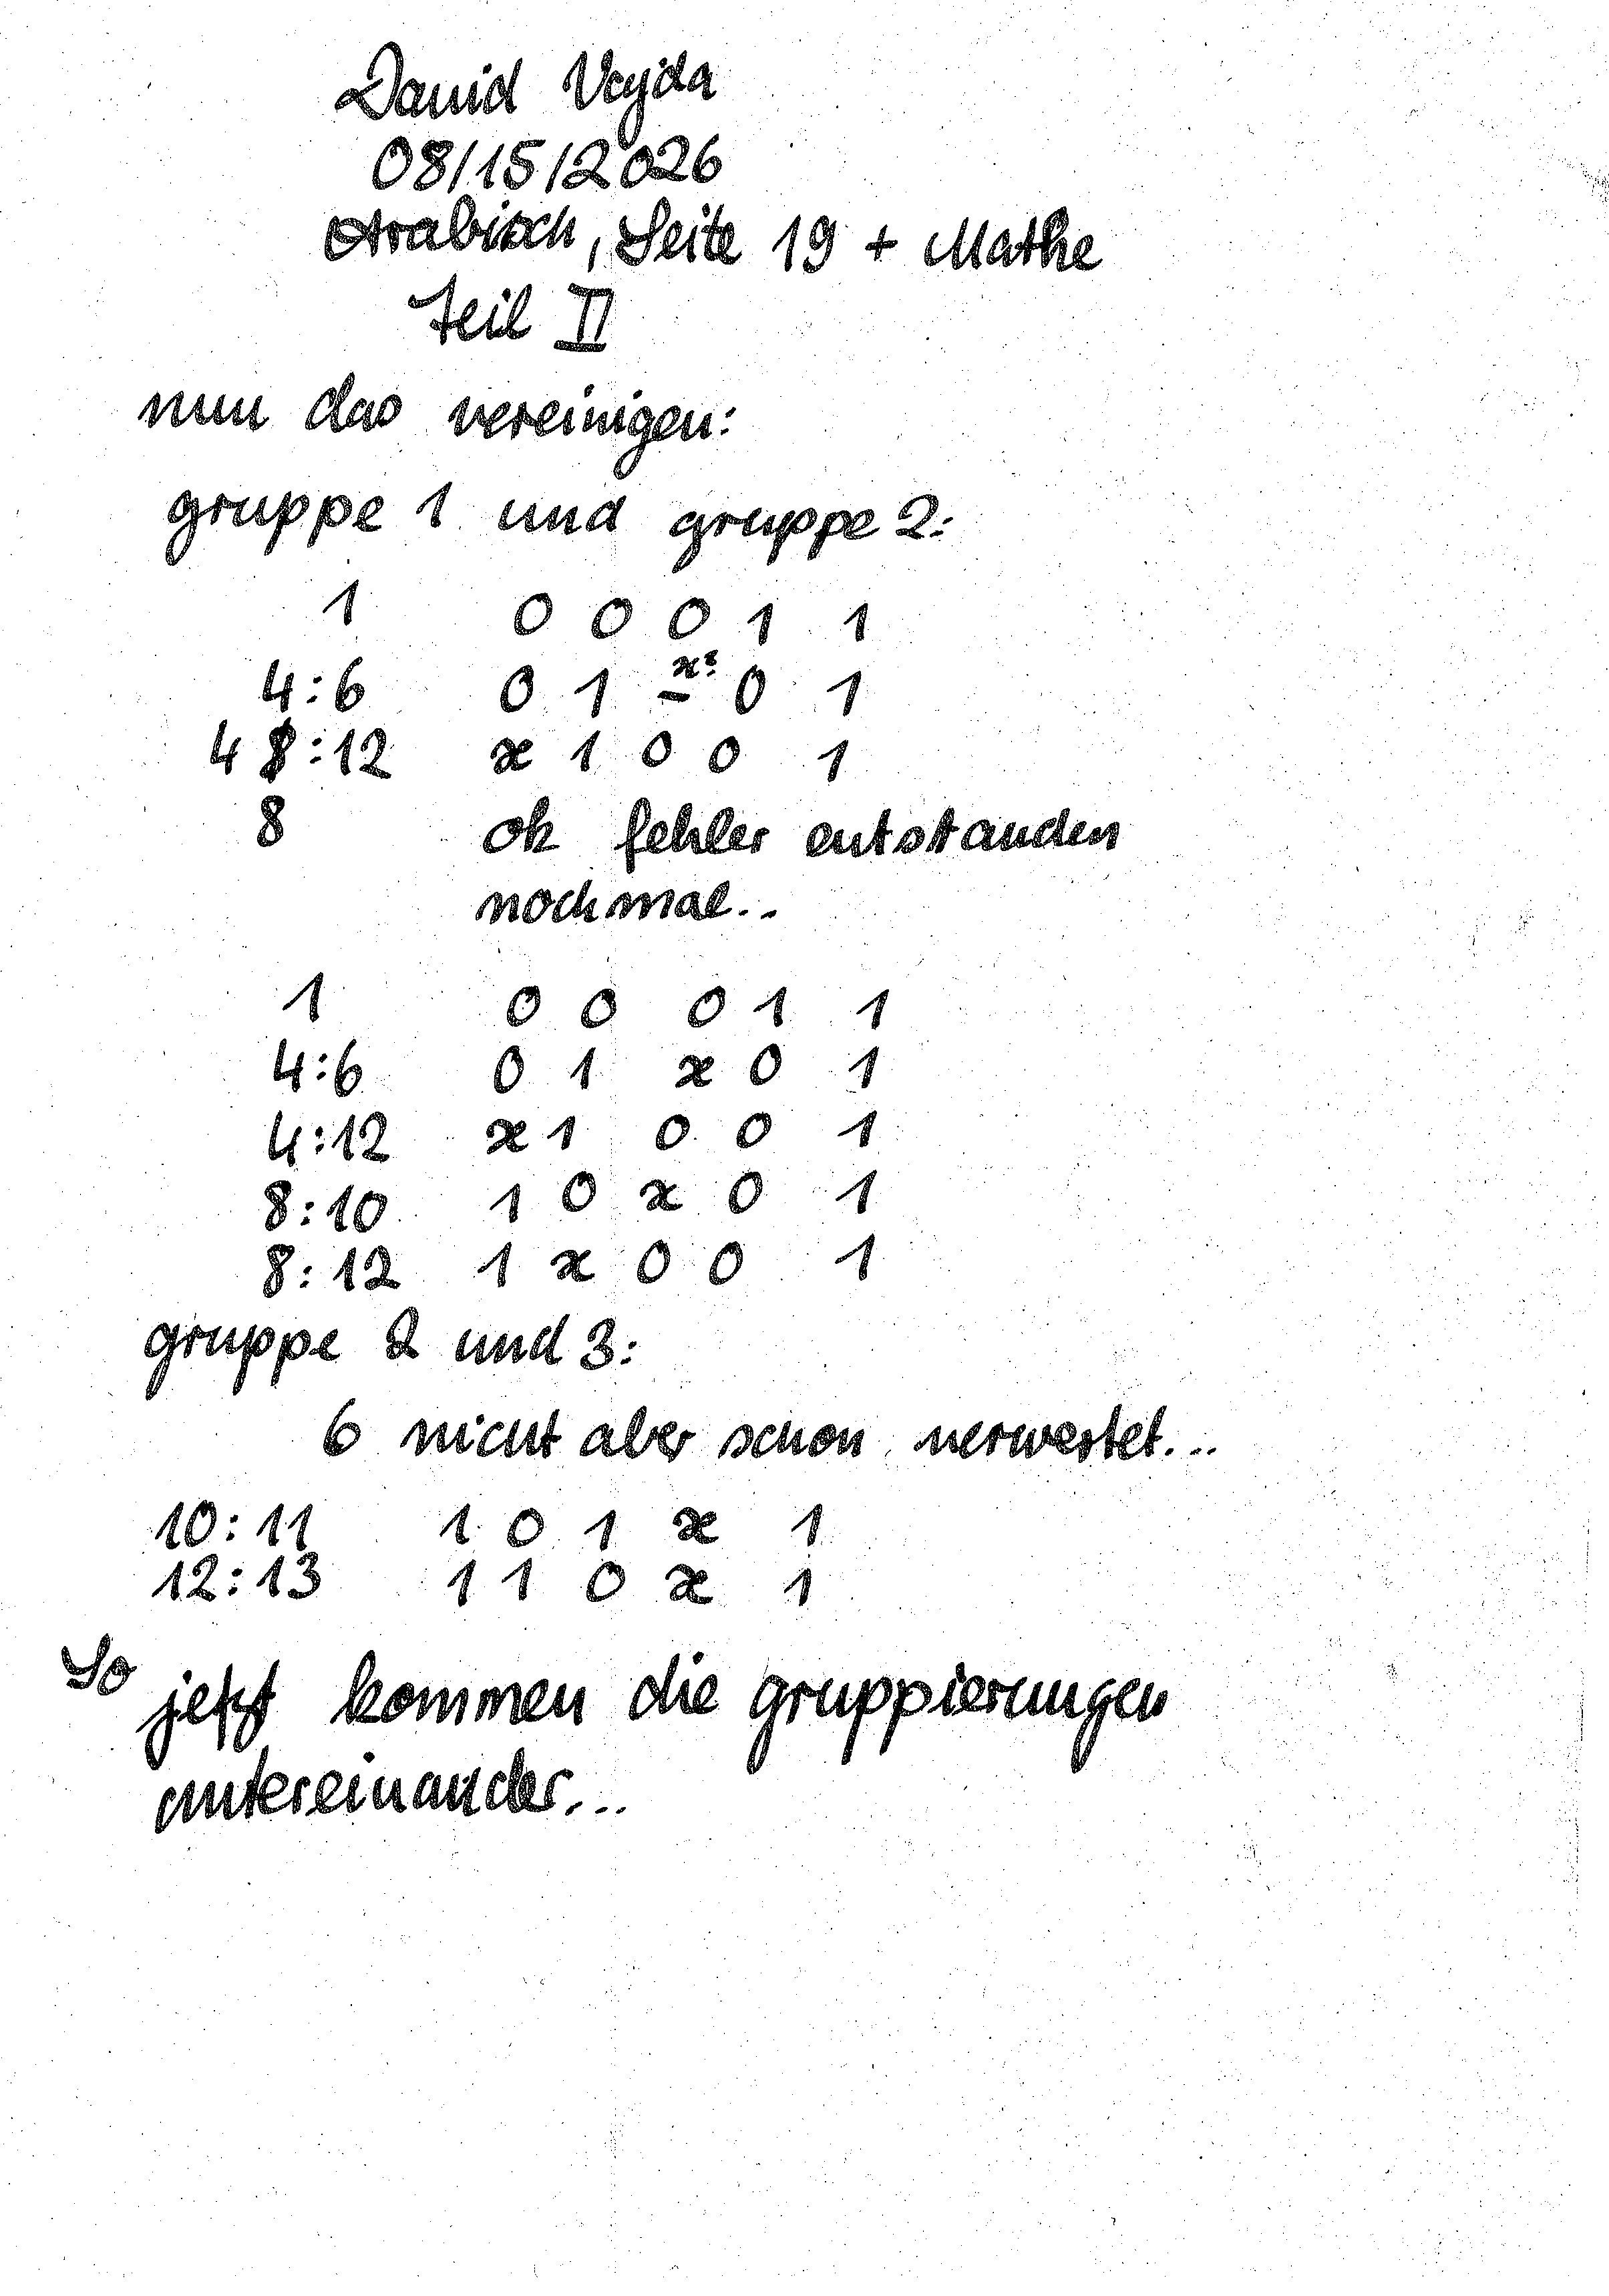 David Vajda
08/15/2026
Arabisch, Seite 19 + Mathe
Teil II
nun das vereinigen:
gruppe 1 und gruppe 2:
1 0 0 0 1 1
x:
4:6 0 1 - 0 1
4 8:12 x 1 0 0 1
8 ok fehler entstanden
nochmal..
1 0 0 0 1 1
4:6 0 1 x 0 1
4:12 x 1 0 0 1
8:10 1 0 x 0 1
8:12 1 x 0 0 1
gruppe 2 und 3:
6 nicht aber schon verwertet...
10:11 1 0 1 x 1
12:13 1 1 0 x 1
So jetzt kommen die gruppierungen
untereinander...